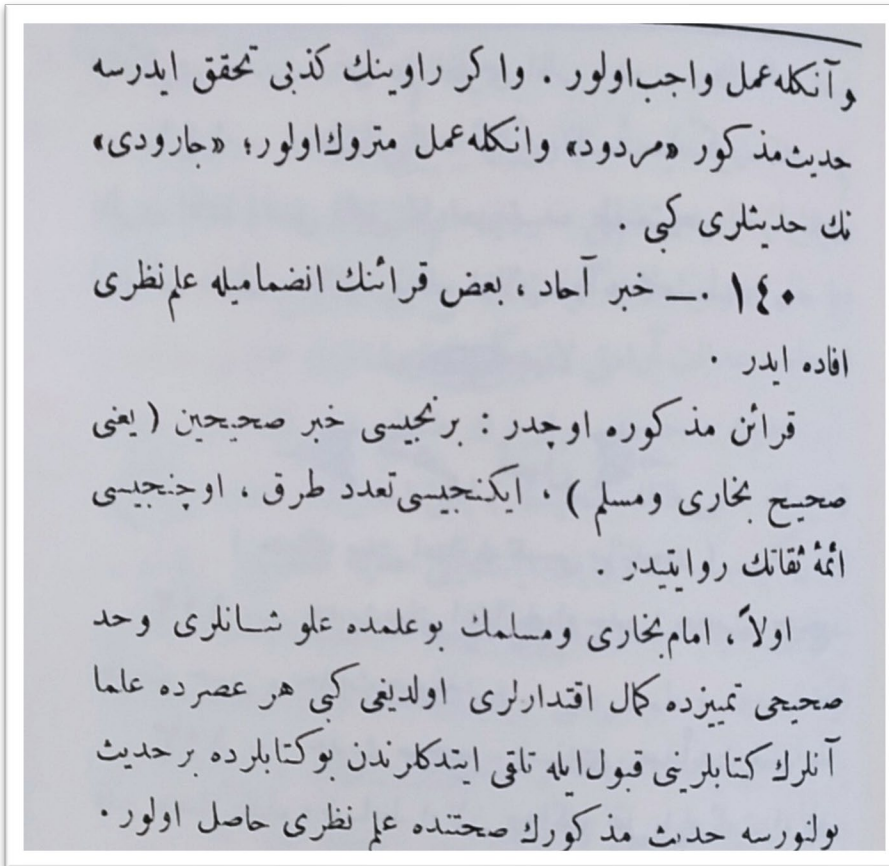 وآنكله عمل واجب اولور . واكر راوينك كذبى تحقق ايدرسه
حديث مذكور «مردود» وانكله عمل متروك اولور؛ «جارودى»
نك حديثلرى كبى .
١٤٠ .— خبر آحاد ، بعض قرائنك انضماميله علم نظرى
افاده ايدر .
قرائن مذكوره اوچدر : برنجيسى خبر صحيحين ( يعنى
صحيح بخارى ومسلم ) . ايكنجيسى تعدد طرق ، اوچنجيسى
ائمهٔ ثقاتك روايتيدر .
اولاً ، امام بخارى ومسلمك بوعلمده علو شانلرى وحد
صحيحى تمييزده كمال اقتدارلرى اولديغى كبى هر عصرده علما
آنلرك كتابلرينى قبول ايله تلقى ايتدكلرندن بوكتابلرده بر حديث
بولنورسه حدث مذكورك صحتنده علم نظرى حاصل اولور .